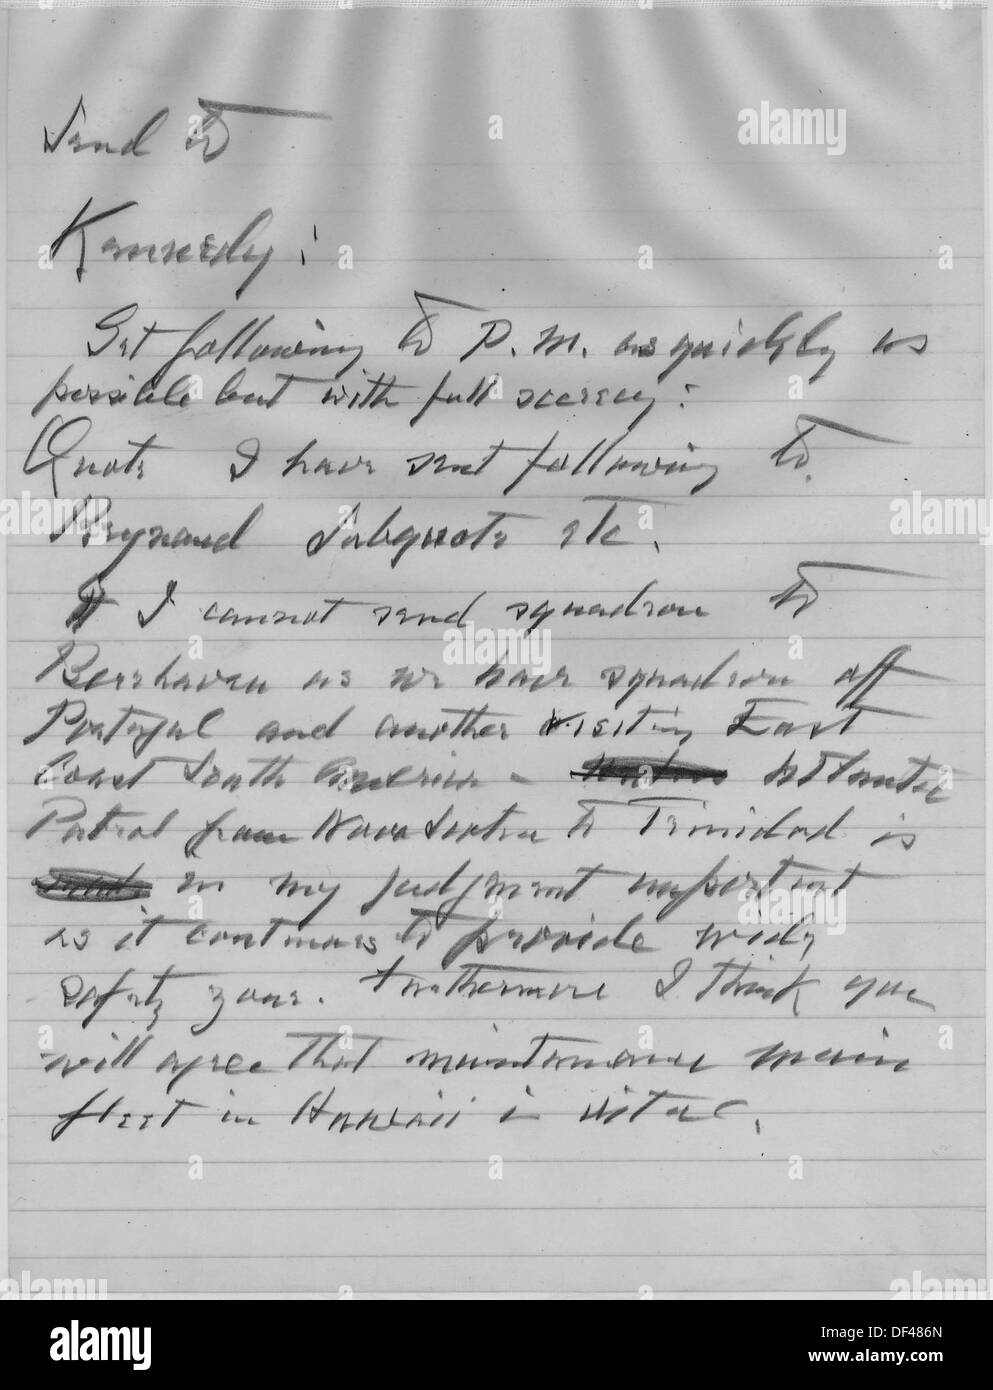 Send to
Kennedy:
Get following to P.M. as quickly as
possible but with full secrecy:
Quote I have sent following to
Reynaud Subquote etc.
I cannot send squadron to
Berehaven as we have squadron off
Portugal and another visiting East
Coast South America - Atlantic
Patrol from Nova Scotia to Trinidad is
in my judgment important
as it continues to provide wide
safety zone. Furthermore I think you
will agree that maintenance main
fleet in Hawaii is vital.
alamy
Image ID: DF486N
www.alamy.com